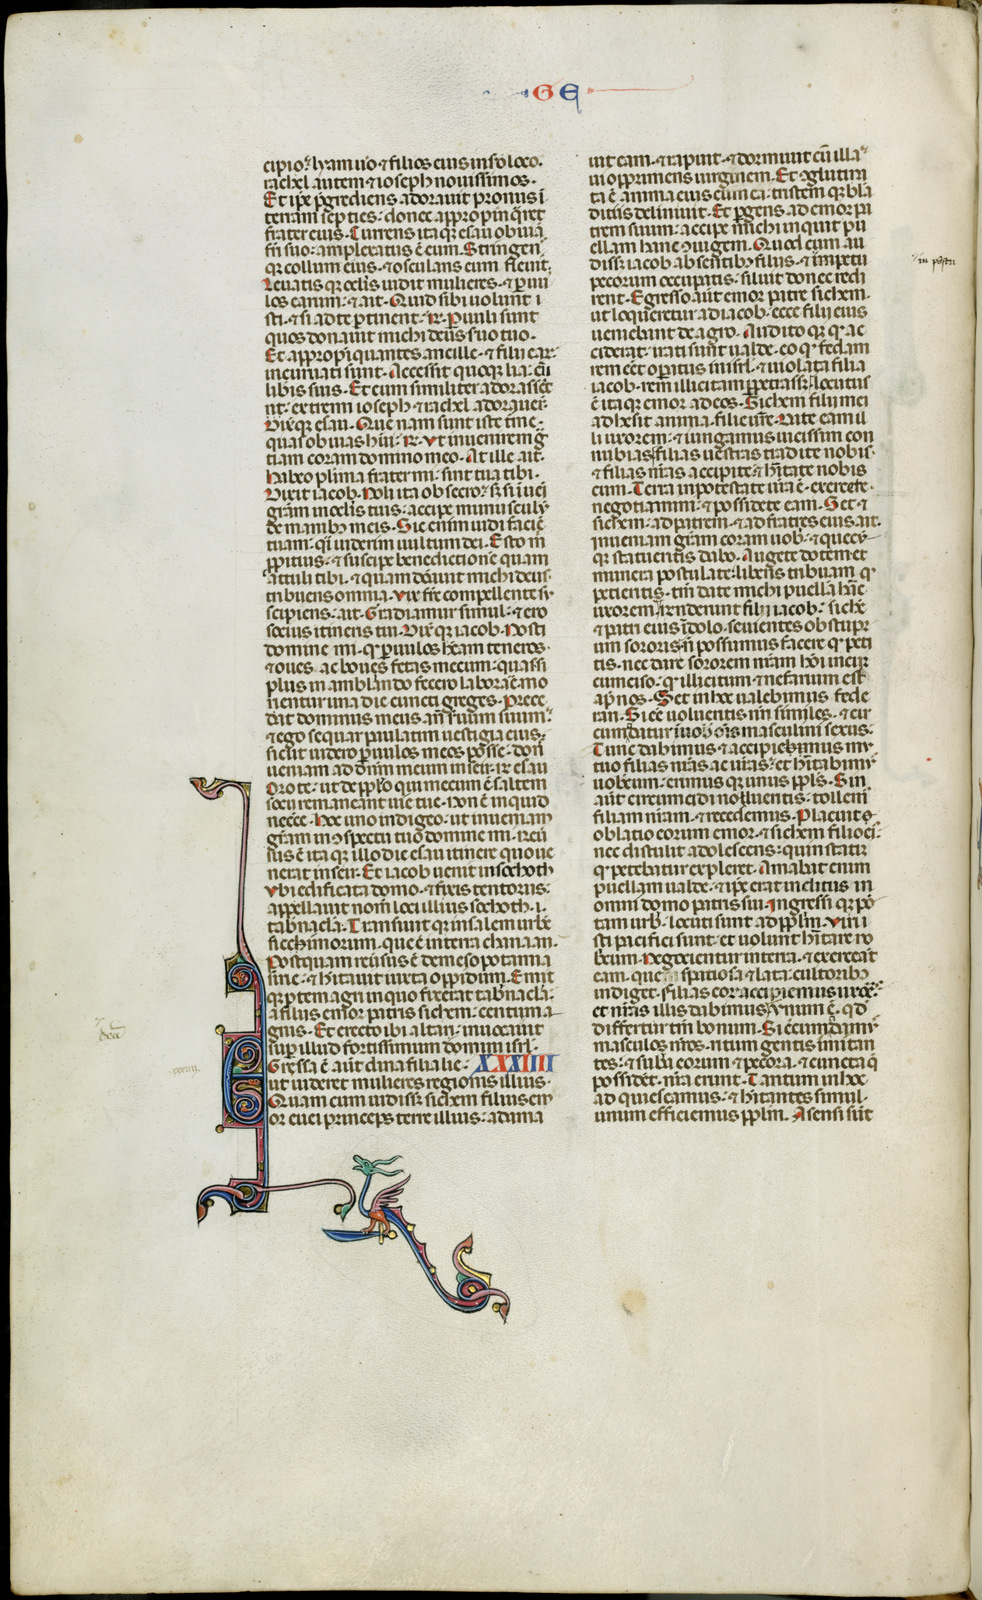 GE
cipio: lyam uo & filios eius in sᷤo loco.
rachel autem & ioseph nouissimos.
Et ipe pgrediens adorauit pronus i
terram septies: donec appropinq̄ret
frater eius. Currens itaq; esau obuia
fri suo: amplexatus ē eum. Stringen
q; collum eius. & osculans eum fleuit.
Leuatis q; oclis uidit mulieres. & puu
los earum: & ait. Quid sibi uolunt i
sti. & si ad te ptinent. R̃. Puuli sunt
quos donauit michi deus suo tuo.
Et appropiquantes ancille. & filii ear
incuruati sunt. Accessit quoq; lia: cū
libis suis. Et cum similiter adorassēt
nt: extremi ioseph & rachel adorauer̄.
Dixitq; esau. Que nam sunt iste turme.
quas obuias hūi: R̃. Vt inuenirem g̃
tiam coram domino meo. At ille ait.
habeo plima frater mi: sint tua tibi.
Dixit iacob. Noli ita obsecro: s; si iueī
gr̃am in oclis tuis: accipe munusculū
de manib; meis. Sic enim uidi faciē
tuam: q̄i uiderim uultum dei. Esto m̃
ppitius: & suscipe benedictione quam
attuli tibi. & quam donauit michi deus
tribuens omnia. Vix fre compellente su
scipiens: ait. Gradiamur simul: & ero
socius itineris tui. Dixitq; iacob. Nosti
domine mi. q̄ puulos habeam teneros.
& oues ac boues fetas mecum: quas si
plus in amblando fecero laborare mo
rientur una die cuncti greges. Prece
dat dominus meus an̄ suum suum:
& ego sequar paulatim uestigia eius:
sicut uidero puulos meos posse: don̄
ueniam ad dn̄m meum in seir. R̃ esau
Oro te: ut de pplo qui mecum ē saltem
socii remaneant uie tue. Non ē inquid
necce. Hoc uno indigeo: ut inueniam
gr̃am in ɔspectu tuo domine mi. Reu
sus ē itaq; illo die esau itinere quo ue
nerat in seir. Et iacob uenit in socboth
Vbi edificata domo. & fixis tentoriis:
appellauit nom̄ loci illius socboth. i.
tabnacla. Transiuitq; in salem urbē
sicchimorum. que ē in terra chanaan.
Postquam reūsus ē de mesopotamia
sirie: & hitauit iuxta oppidum. Emit
q; ptem agri in quo fixerat tabnacla:
a filiis emor patris sichem: centum a
gnis. Et erecto ibi altari: inuocauit
sup illud fortissimum dominū isrl.
Gressa ē aut̄ dina filia lie: XXXIIII
ut uideret mulieres regionis illius.
Quam cum uidiss; sichem filius em
or euei princeps terre illius: adama
uit eam. & rapuit. & dormiuit cū illa
ui opprimens uirginem. Et ɔglutina
ta ē anima eius cum ea: tristem q; bla
ditiis deliniuit. Et pgens ad emor pa
trem suum: accipe michi inquit pu
ellam hanc ɔiugem. Quod cum au
diss; iacob absentib; filiis. & in pastu
pecorum occupatis: siluit donec redi
rent. Egresso aut̄ emor patre sichem.
ut loqueretur ad iacob: ecce filii eius
ueniebant de agro. Auditoq; q; ac
ciderat: irati sunt ualde. eo q̄ fedam
rem eēt opatus in isrl. & uiolata filia
iacob. rem illicitam ppetrass;. Locutus
ē itaq; emor ad eos. Sichem filii mei
adhesit anima. filie ur̄e. Date eam il
li uxorem: & iungamus uicissim con
nubia. filias uestras tradite nobis.
& filias nras accipite. & hitate nobis
cum. Terra in potestate ur̄a ē. exercete.
negotiamini: & possidete eam. Set &
sichem: ad patrem. & ad fratres eius ait.
Inueniam gr̃am coram uob: & quecū
q; statueritis dabo. Augete dotem et
munera postulate: libens tribuam q̄
petieritis. tm̄ date michi puella hāc
uxorem. Responderunt filii iacob: sichē
& patri eius ī dolo. seuientes ob stupr
um sororis. ñ possumus facere q̄ peti
tis. nec dare sororem nram hōi incir
cunciso: q̄ illicitum & nefarium est
ap nos. Set in hoc ualebimus fede
rari. Si eē uolueritis nri similes. & cir
cumcidatur in uob oīs masculini sexus.
Tunc dabimus & accipiebimus mu
tuo filias nras ac uras: et hitabimus
uobcum: erimus q; unus ppls. Sin
aut̄ circumcidi nolueritis: tollem
filiam nram. & recedemus. Placuit
oblatio eorum emor. & sichem filio ei:
nec distulit adolescens: quin statim
q̄ petebatur expleret. Amabat enim
puellam ualde: & ipe erat inclitus in
omni domo patris sui. Ingressi q; por
tam urb: locuti sunt ad pplm. Viri i
sti pacifici sunt: et uolunt hitare no
bcum. Negocientur in terra. & exerceat
eam. que spatiosa & lata: cultoribus
indiget. filias eor accipiemus uxores:
et nras illis dabimus. Vnum ē. q̄d
differtur tm̄ bonum. Si circumcidamus
masculos nros. ritum gentis imitan
tes: & suba eorum & pecora. & cuncta q̄
possidēt. nra erunt. Tantum in hoc
ad quiescamus: & hitantes simul.
unum efficiemus pplm. Asensi sūt
in pastu